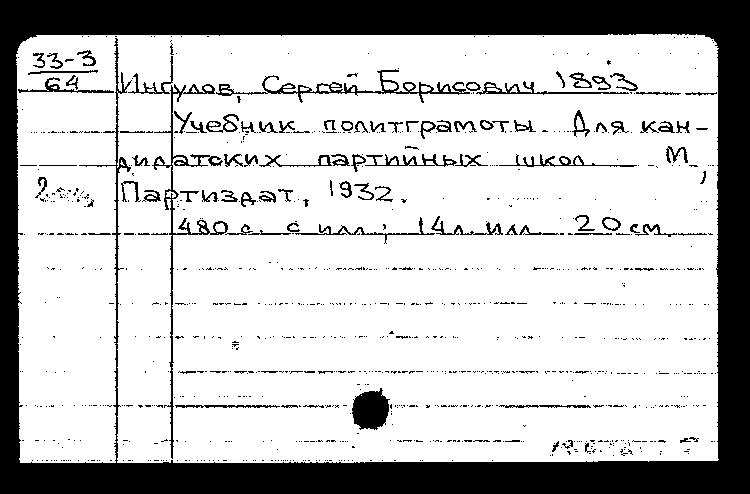 33-3
64
Ингулов, Сергей Борисович 1893
Учебник политграмоты. Для кан-
дидатских партийных школ. М.,
Партиздат, 1932.
480 с. с илл.; 14 л. илл. 20 см.